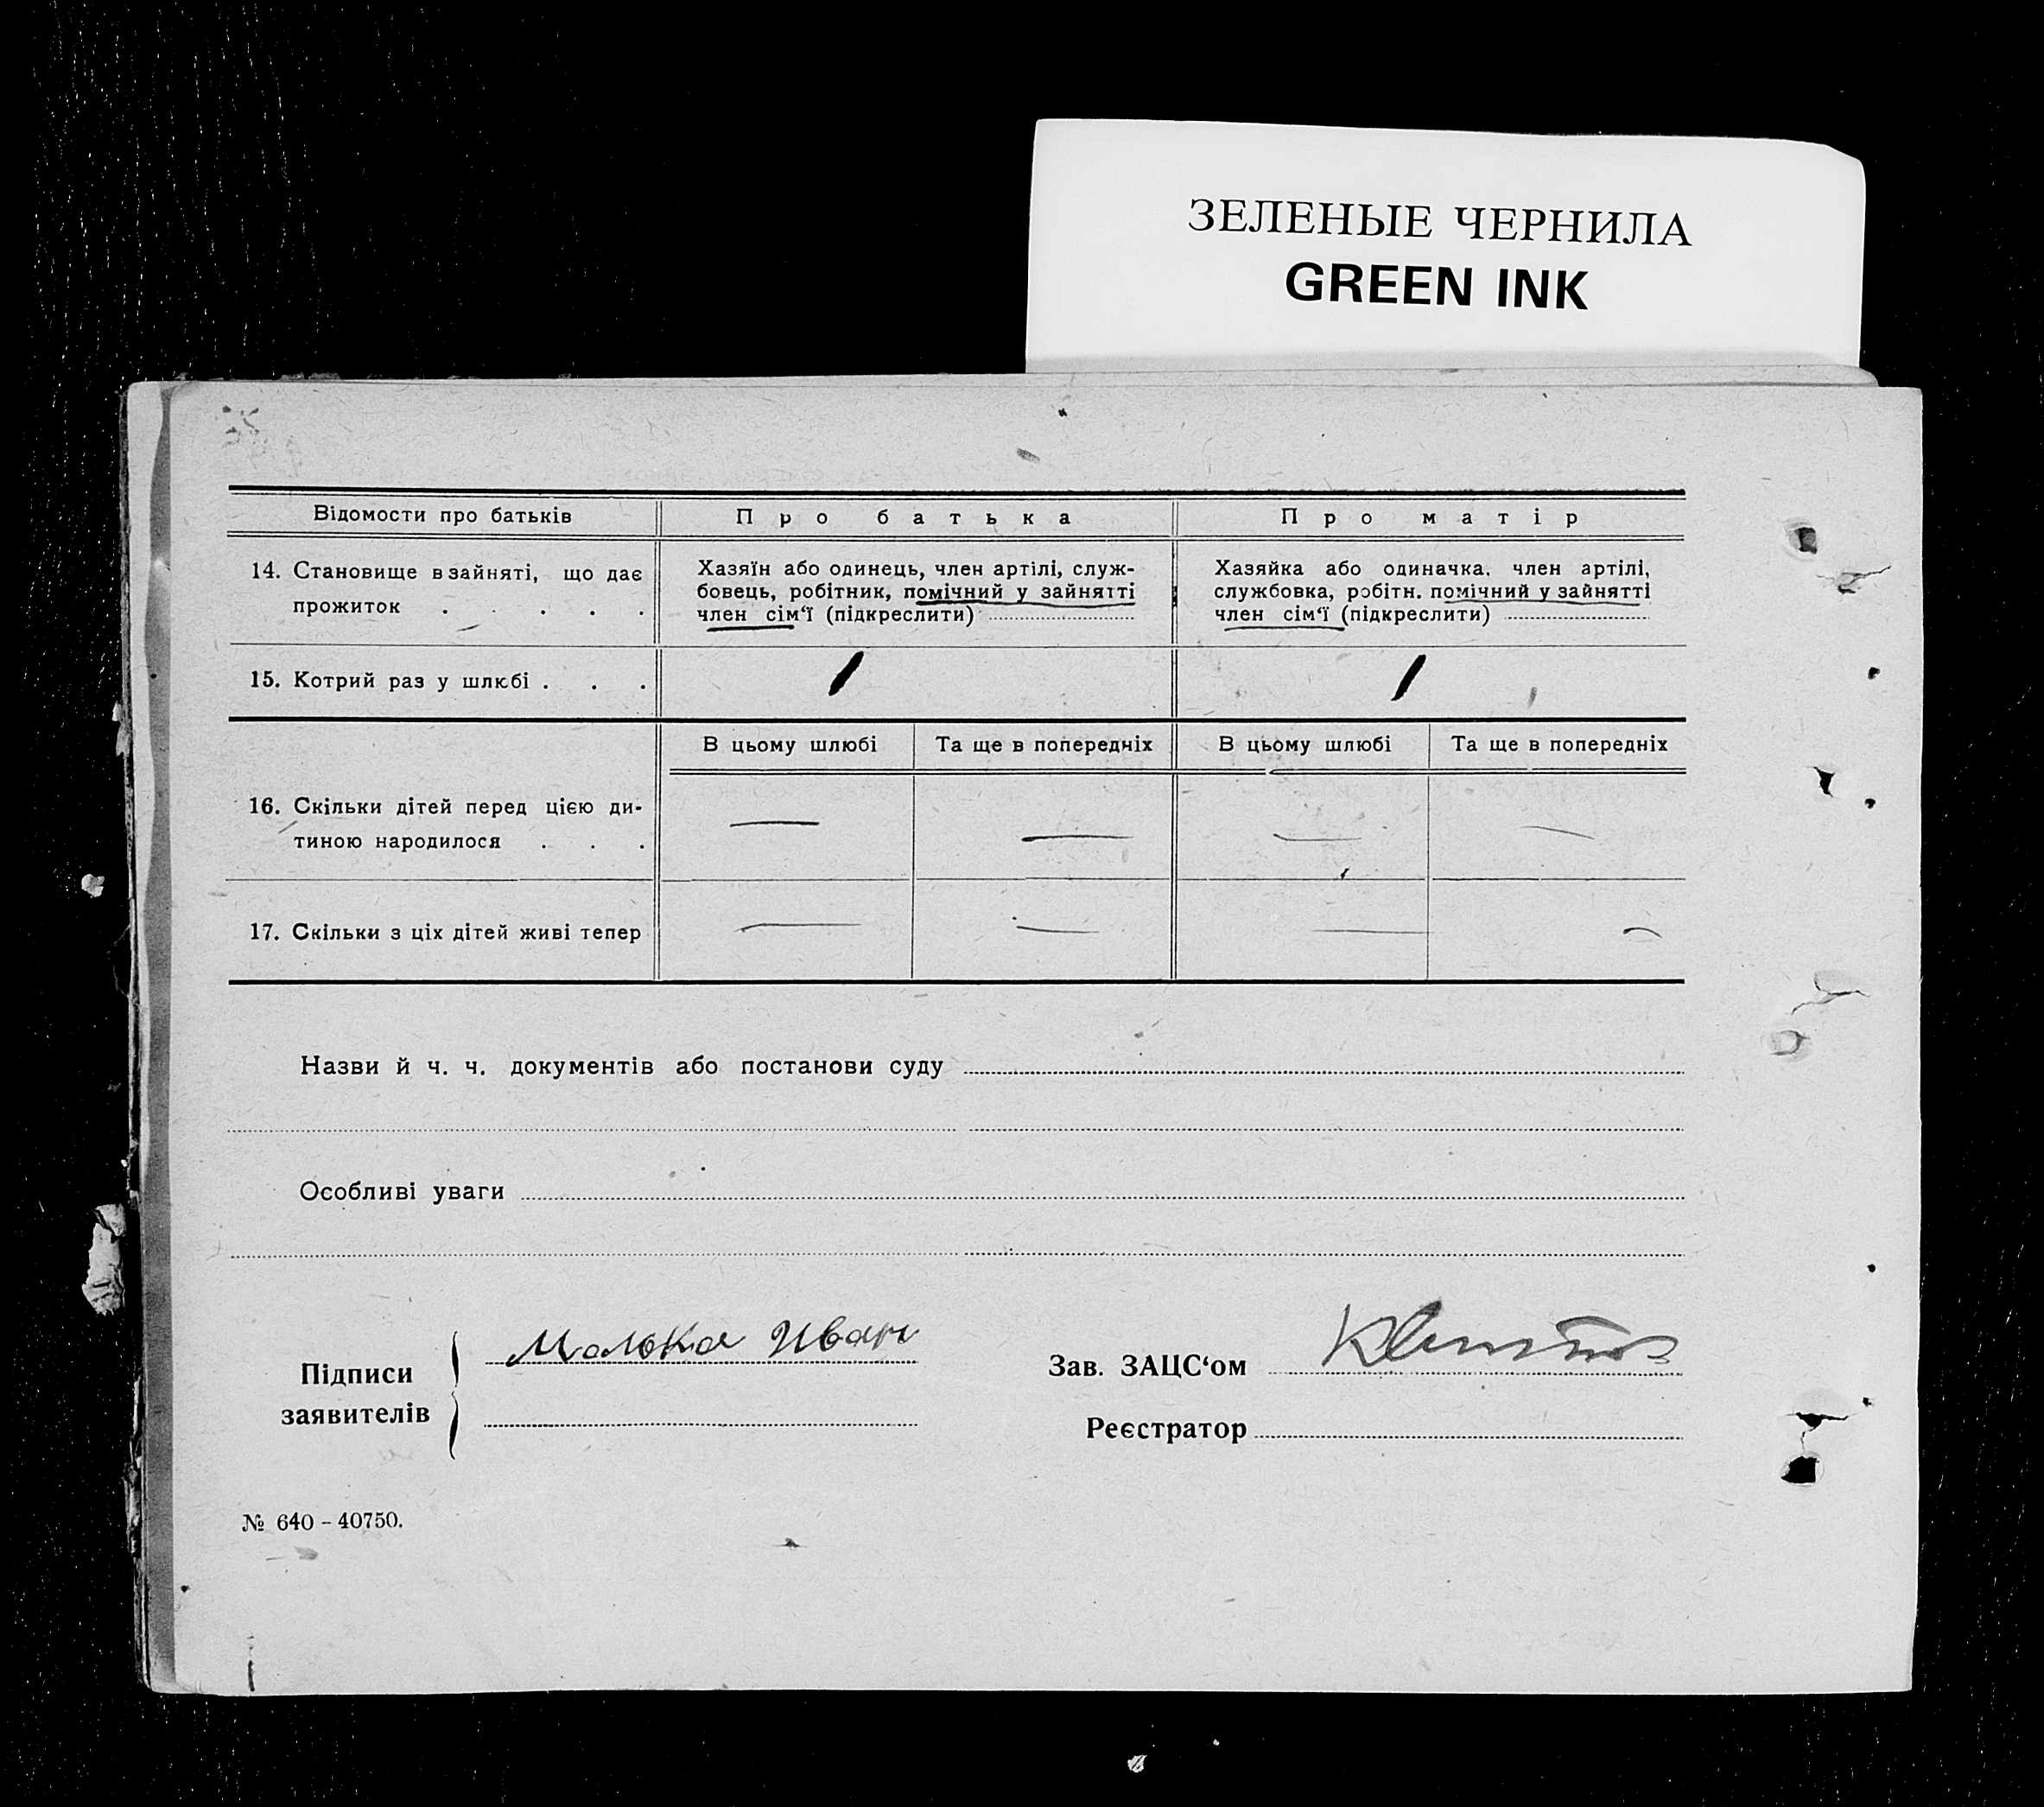 ЗЕЛЕНЫЕ ЧЕРНИЛА
GREEN INK
Відомости про батьків
Про батька
Про матір
14. Становище в зайняті, що дає
прожиток . . . . .
Хазяїн або одинець, член артілі, служ-
бовець, робітник, помічний у зайнятті
член сім‘ї (підкреслити)
Хазяйка або одиначка, член артілі,
службовка, робітн. помічний у зайнятті
член сім‘ї (підкреслити)
15. Котрий раз у шлюбі . . .
1
1
В цьому шлюбі
Та ще в попередніх
В цьому шлюбі
Та ще в попередніх
16. Скільки дітей перед цією ди-
тиною народилося . . .
—
—
—
—
17. Скільки з ціх дітей живі тепер
—
—
—
—
Назви й ч. ч. документів або постанови суду
Особливі уваги
Підписи
заявителів
Малька Иван
Зав. ЗАЦС‘ом
Реєстратор
№ 640 – 40750.